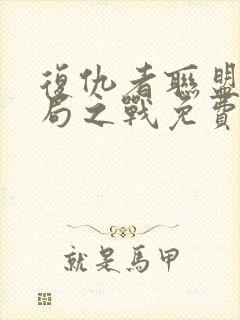 復仇者聯盟
局之戰免費
就是馬甲